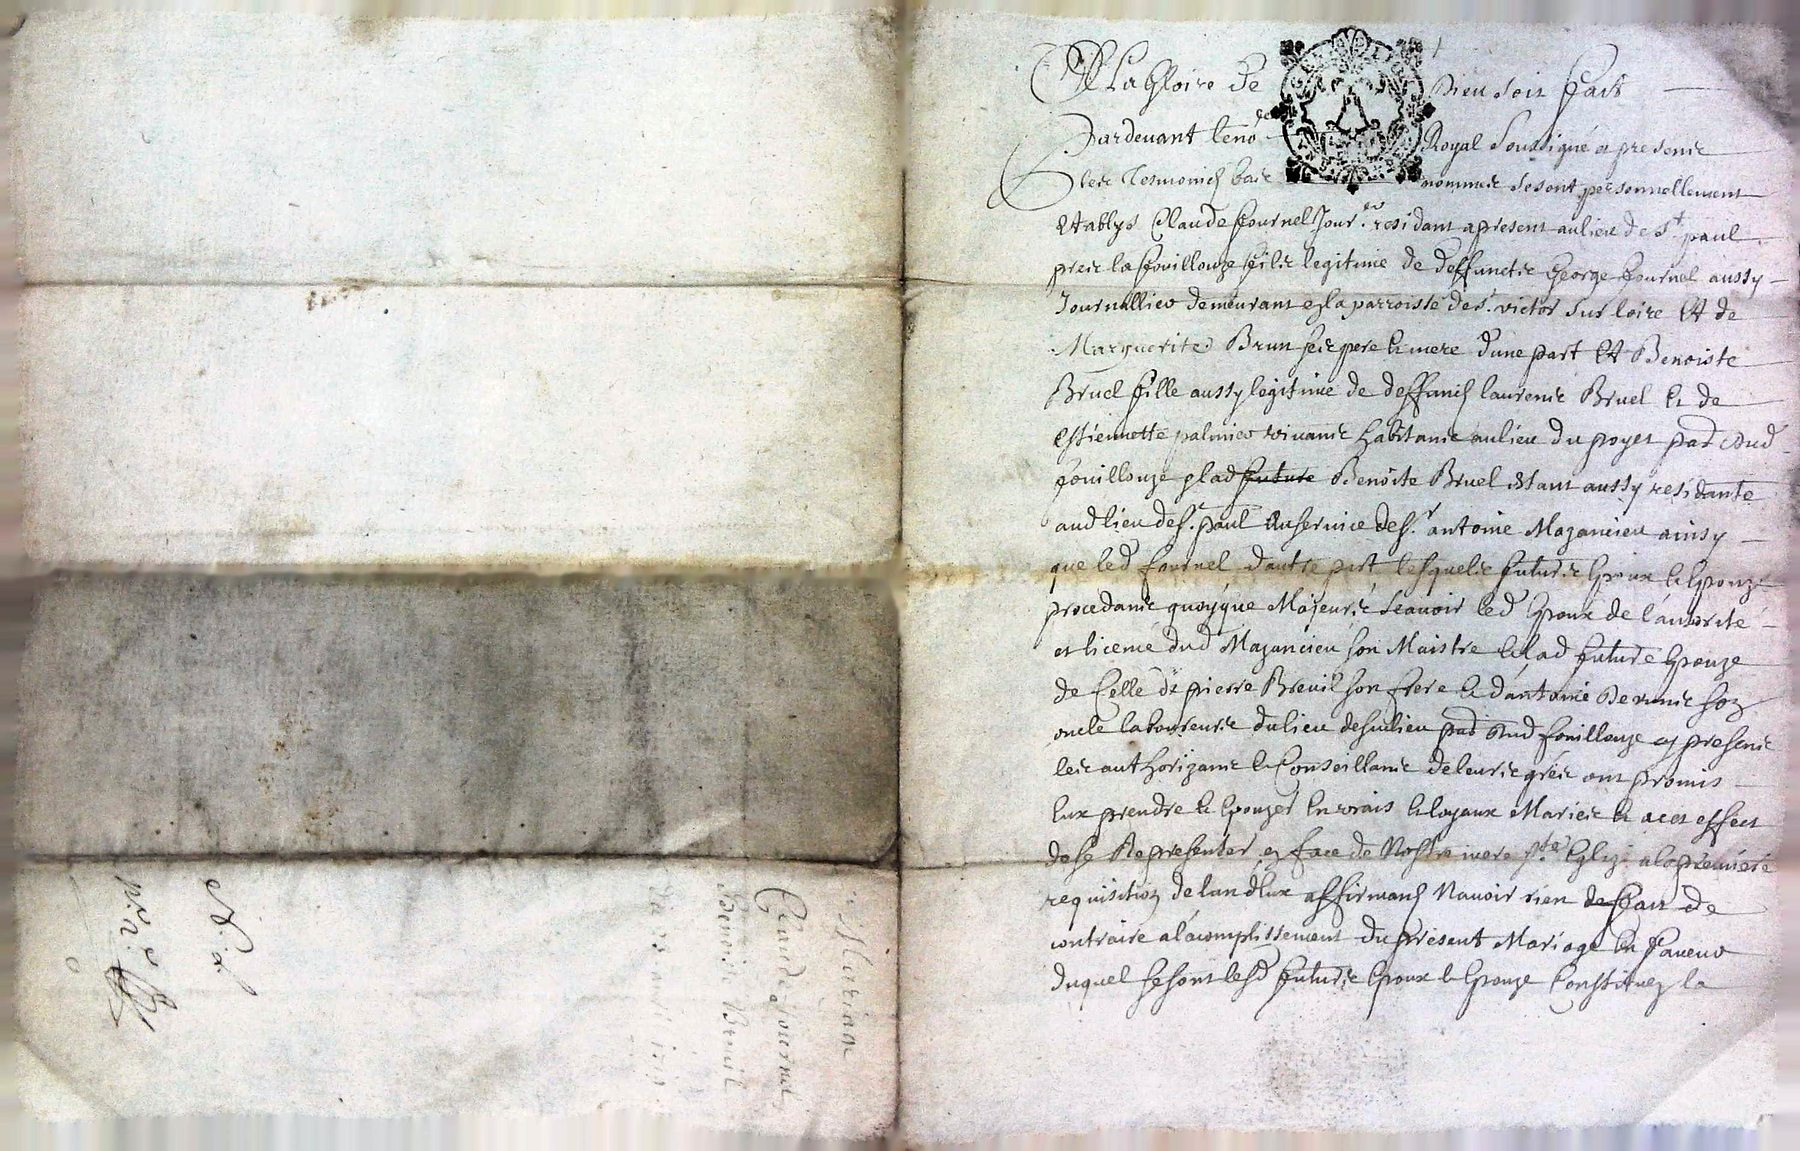 A La Gloire de Dieu soit fait
Pardevant le no.re Royal soussigné et presents
les tesmoins bas nommes se sont personnellement
Establys Claude fournel Jour.er residant apresent au lieu de S.t paul
pres la fouillouze fils legitime de deffunctz George fournel aussy
Journallier demeurant en la parroisse de S.t victor sur loire Et de
Marguerite Brun ses pere et mere d'une part Et Benoiste
Bruel fille aussy legitime de deffunct laurens Bruel et de
estiennette palmier vivants habitants au lieu du poyet par dud
fouillouze lad future Benoite Bruel Estant aussy residante
aud lieu de S.t paul au service de S.r antoine Mazancieu ainsy
que led fournel d'autre part lesquels futurs Epoux et Epouze
procedants quoyque Majeurs scavoir led Epoux de l'autorité
et licence dud Mazancieu son Maistre et lad future Epouze
de Celle de pierre Breuil son frere et d'antoine son
oncle laboureurs du lieu de par dud fouillouze presents
les authorizants et Conseillants de leurs grés ont promis
Eux prendre et Epouzer En vrais et loyaux Mariés et a cet effect
de se Representer en face de Nostre mere S.te Eglize a la premiere
requisition de l'un d'Eux affirmants N'avoir rien de fait de
contraire a l'acomplissement du present Mariage En faveur
duquel se sont lesd futurs Epoux et Epouze Constitués la
Mariage
Claude fournel
Benoiste Breuil